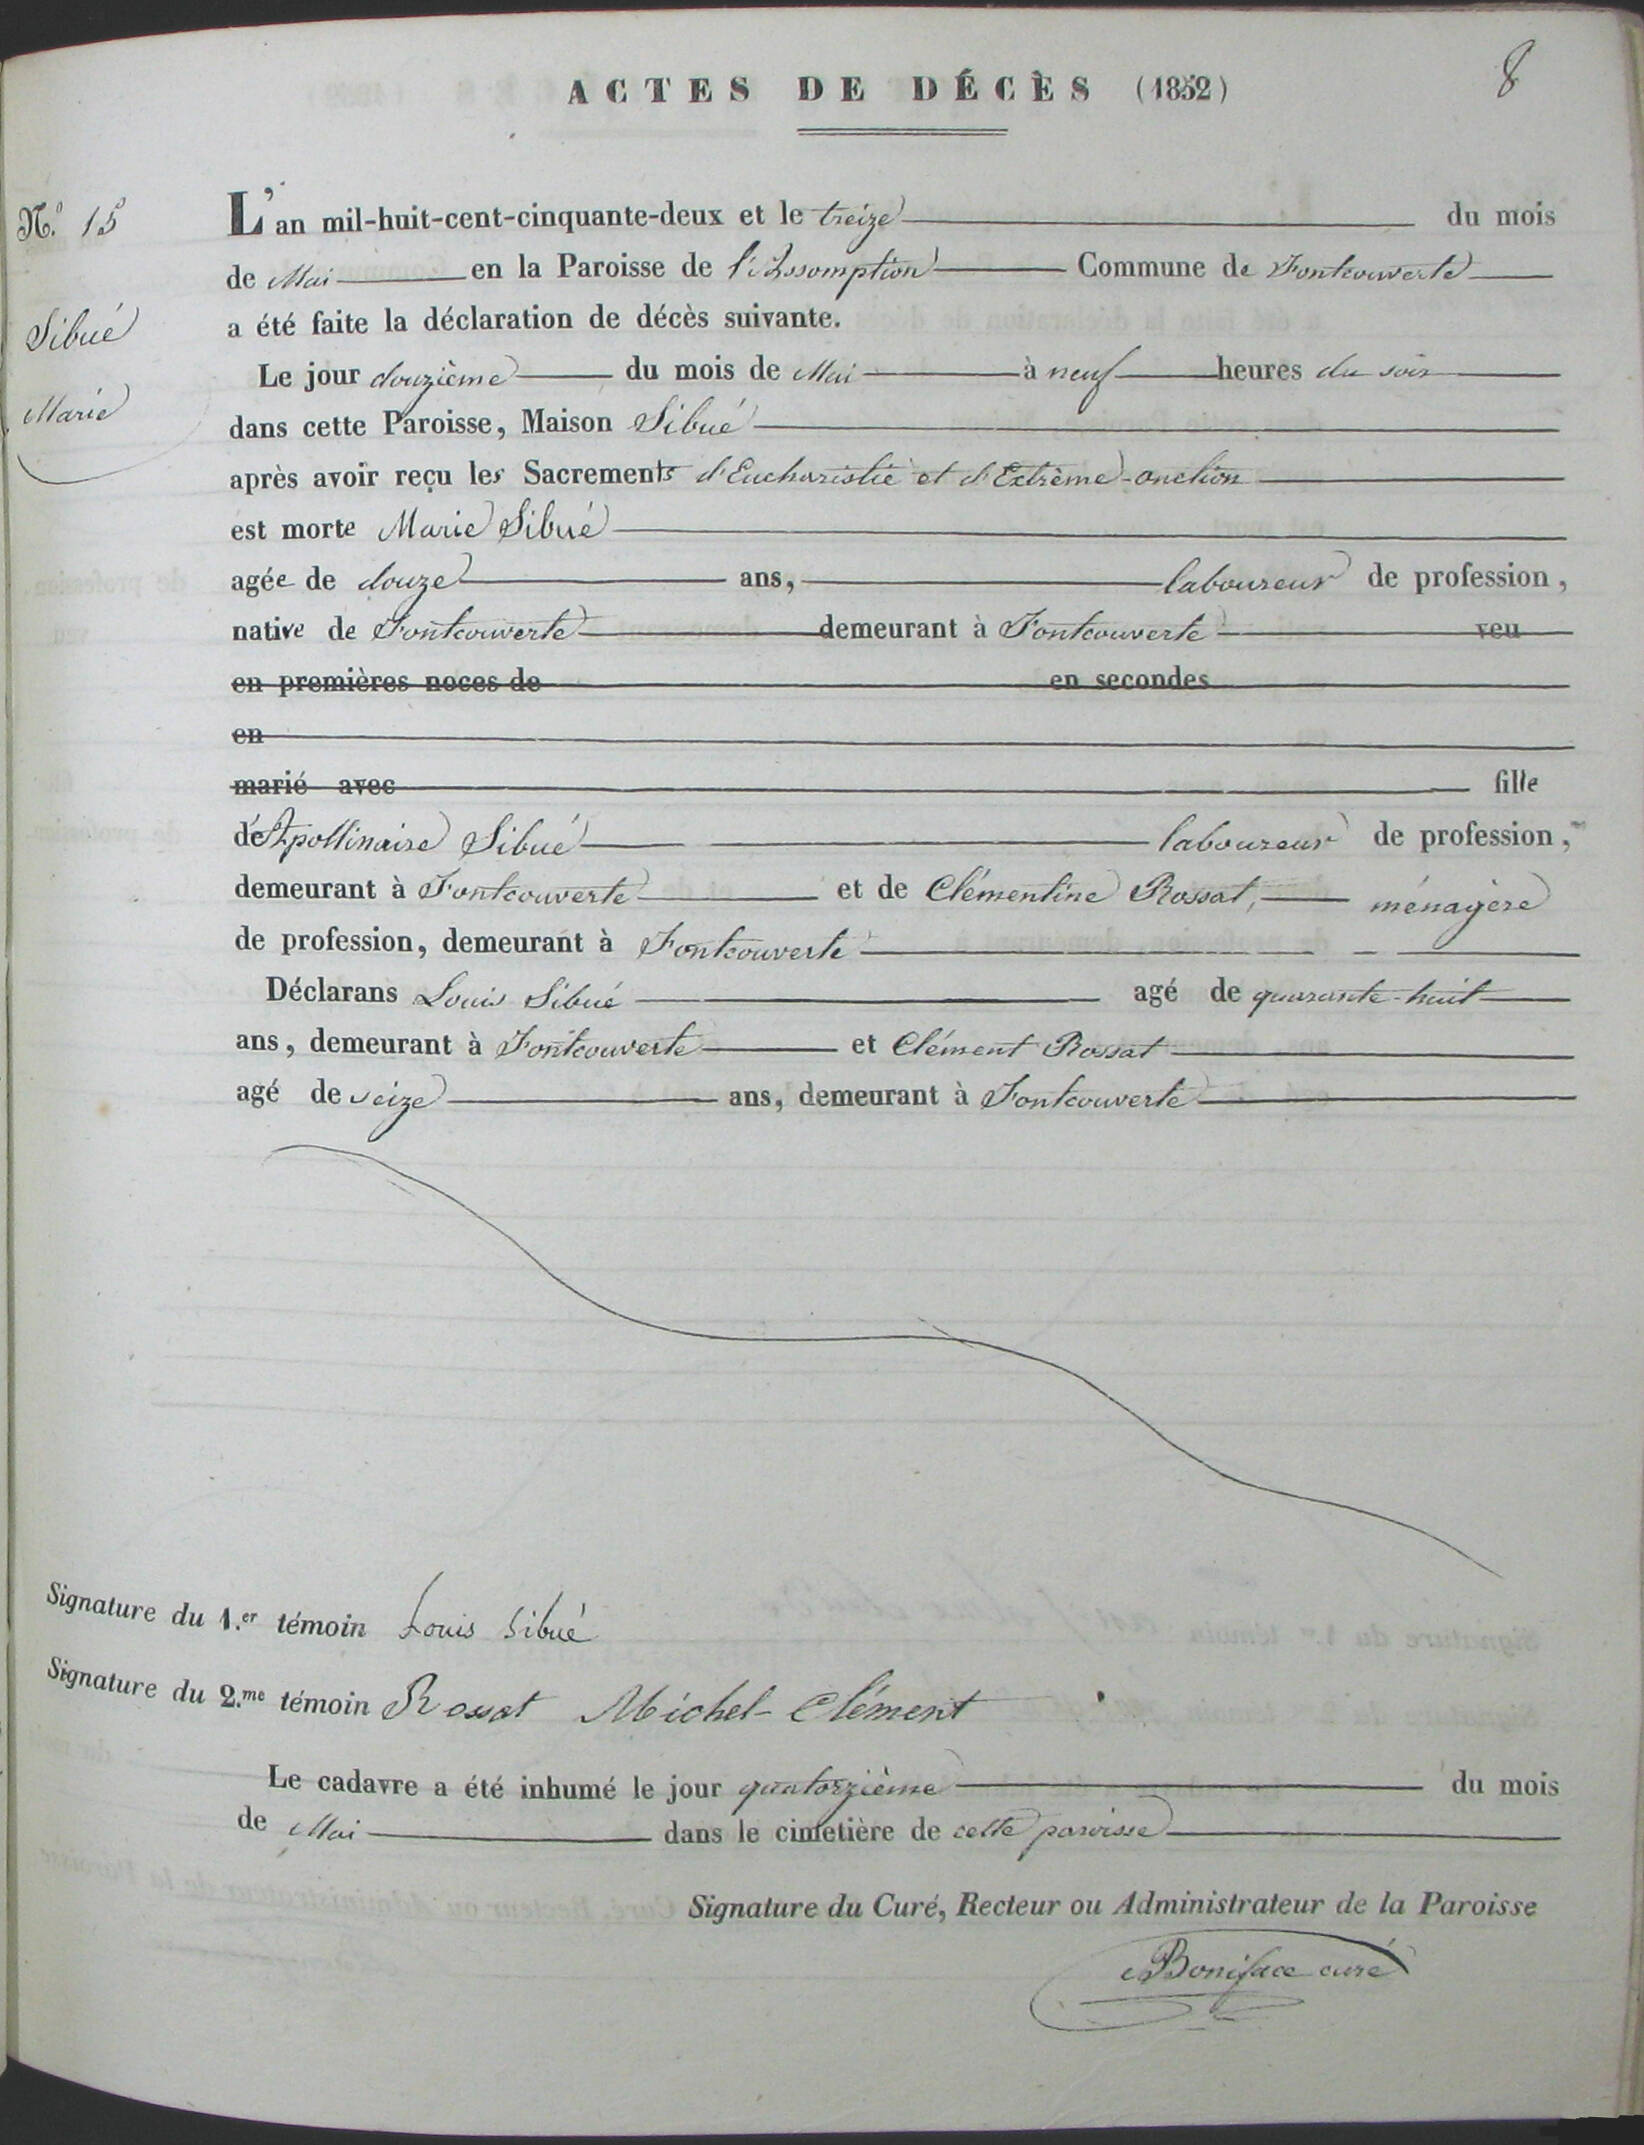 ACTES DE DÉCÈS (1852)
8
N.º 15
Sibué
Marie
L'an mil-huit-cent-cinquante-deux et le treize du mois
de Mai en la Paroisse de l'Assomption Commune de Fontcouverte
a été faite la déclaration de décès suivante.
Le jour douzième du mois de Mai à neuf heures du soir
dans cette Paroisse, Maison Sibué
après avoir reçu les Sacrements d'Eucharistie et d'Extrème-onction
est morte Marie Sibué
agée de douze ans, laboureur de profession,
native de Fontcouverte demeurant à Fontcouverte veu
en premières noces de en secondes
en
marié avec fille
de Apollinaire Sibué laboureur de profession,
demeurant à Fontcouverte et de Clémentine Rossat, ménagère
de profession, demeurant à Fontcouverte
Déclarans Louis Sibué agé de quarante-huit
ans, demeurant à Fontcouverte et Clément Rossat
agé de seize ans, demeurant à Fontcouverte
Signature du 1.er témoin Louis Sibué
Signature du 2.me témoin Rossat Michel-Clément
Le cadavre a été inhumé le jour quatorzième du mois
de Mai dans le cimetière de cette paroisse
Signature du Curé, Recteur ou Administrateur de la Paroisse
Boniface curé